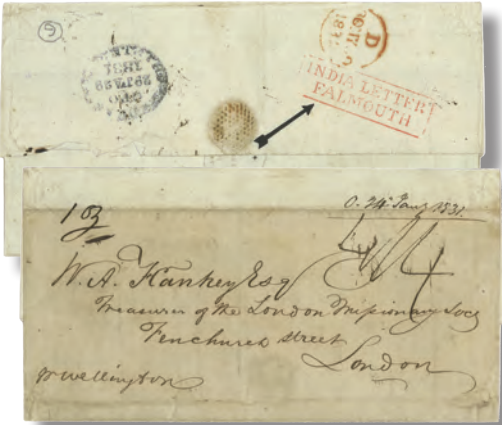 6
D
INDIA LETTER
FALMOUTH
O. 24 Jany 1831.
W. A. Hankey Esq
Treasurer of the London Missionary Socy
Fenchurch street
London
pr Wellington